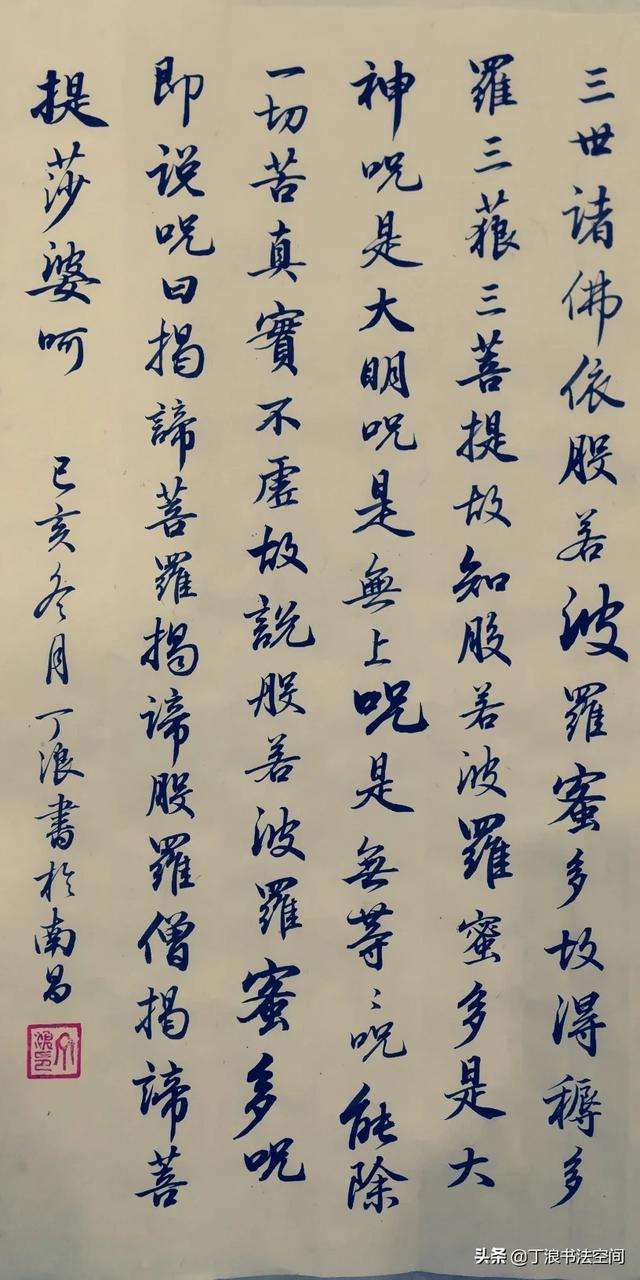 三世诸佛依般若波羅蜜多故得耨多
羅三藐三菩提故知般若波羅蜜多是大
神呪是大明呪是無上呪是無等〻呪能除
一切苦真實不虛故説般若波羅蜜多呪
即说呪曰揭諦菩羅揭諦般羅僧揭諦菩
提莎婆呵 己亥冬月丁浪書於南昌
头条 @丁浪书法空间